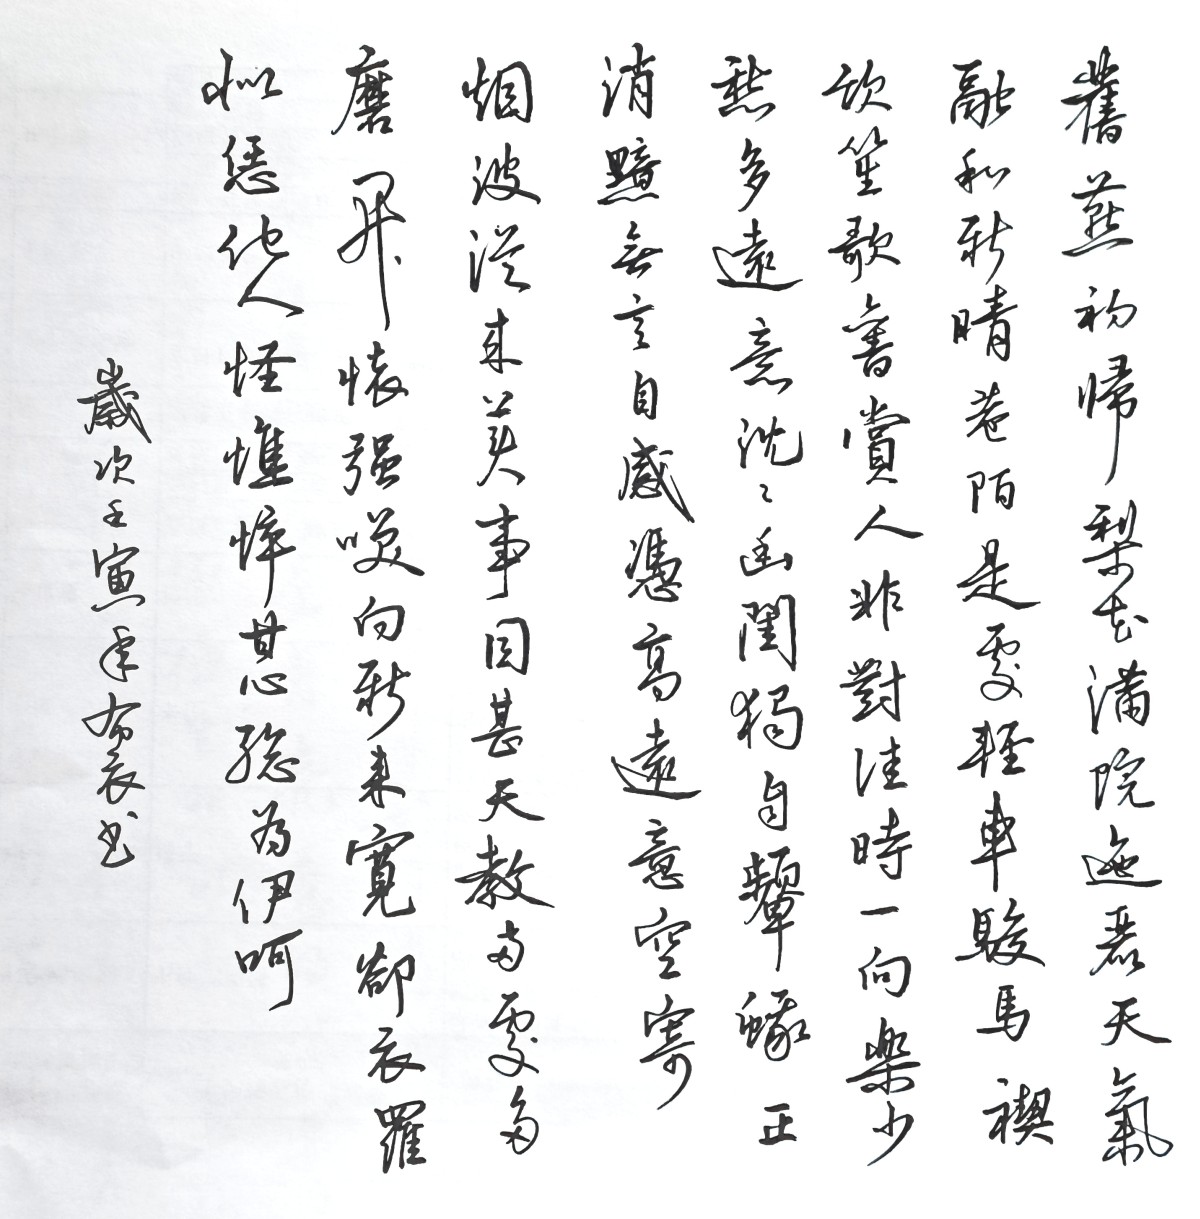 舊燕初歸梨花滿院迤邐天氣
融和新晴巷陌是處輕車駿馬禊
飲笙歌舊賞人非對佳時一向樂少
愁多遠意沈〻幽閨獨自顰蛾正
消黯無言自感憑高遠意空寄
烟波從来美事因甚天教兩處多
磨開懷强咲向新来寬卻衣羅
似恁他人怪憔悴甘心總為伊呵
歲次壬寅年布衣書